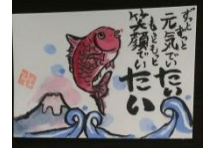 ずっとずっと
元気でいたい
もっともっと
笑顔でいたい